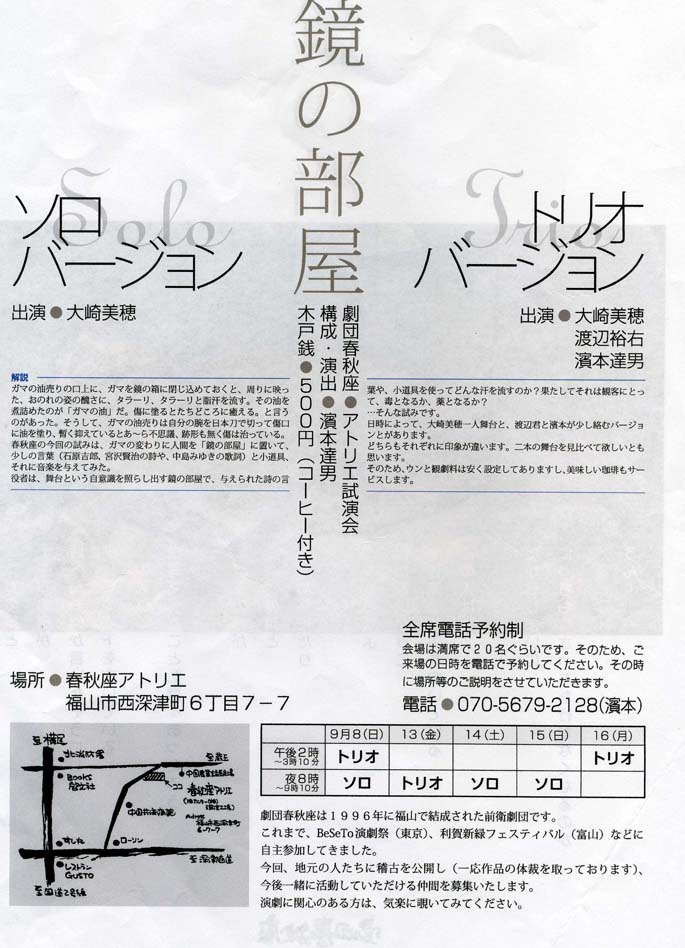 鏡の部屋
Solo
ソロ
バージョン
出演●大崎美穂
Trio
トリオ
バージョン
出演●大崎美穂
渡辺裕右
濱本達男
劇団春秋座●アトリエ試演会
構成・演出●濱本達男
木戸銭●500円(コーヒー付き)
解説
ガマの油売りの口上に、ガマを鏡の箱に閉じ込めておくと、周りに映っ
た、おのれの姿の醜さに、タラーリ、タラーリと脂汗を流す。その油を
煮詰めたのが「ガマの油」だ。傷に塗るとたちどころに癒える。と言う
のがあった。そうして、ガマの油売りは自分の腕を日本刀で切って傷口
に油を塗り、暫く抑えているとあ~ら不思議、跡形も無く傷は治っている。
春秋座の今回の試みは、ガマの変わりに人間を「鏡の部屋」に置いて、
少しの言葉(石原吉郎、宮沢賢治の詩や、中島みゆきの歌詞)と小道具、
それに音楽を与えてみた。
役者は、舞台という自意識を照らし出す鏡の部屋で、与えられた詩の言
葉や、小道具を使ってどんな汗を流すのか?果たしてそれは観客にとっ
て、毒となるか、薬となるか?
…そんな試みです。
日時によって、大崎美穂一人舞台と、渡辺君と濱本が少し絡むバージョ
ンとがあります。
どちらもそれぞれに印象が違います。二本の舞台を見比べて欲しいとも
思います。
そのため、ウンと観劇料は安く設定してありますし、美味しい珈琲もサー
ビスします。
全席電話予約制
会場は満席で20名ぐらいです。そのため、ご
来場の日時を電話で予約してください。その時
に場所等のご説明をさせていただきます。
電話●070-5679-2128(濱本)
場所●春秋座アトリエ
福山市西深津町6丁目7-7
至横尾
北消防署
至蔵王
BOOKS
啓文社
ココ
春秋座アトリエ
福山市西深津町
6-7-7
中国中央病院
すし丸
ローソン
レストラン
GUSTO
至国道2号線
9月8(日) 13(金) 14(土) 15(日) 16(月)
午後2時 トリオ トリオ
~3時10分
夜8時 ソロ トリオ ソロ ソロ
~9時10分
劇団春秋座は1996年に福山で結成された前衛劇団です。
これまで、BeSeTo演劇祭(東京)、利賀新緑フェスティバル(富山)などに
自主参加してきました。
今回、地元の人たちに稽古を公開し(一応作品の体裁を取っております)、
今後一緒に活動していただける仲間を募集いたします。
演劇に関心のある方は、気楽に覗いてみてください。